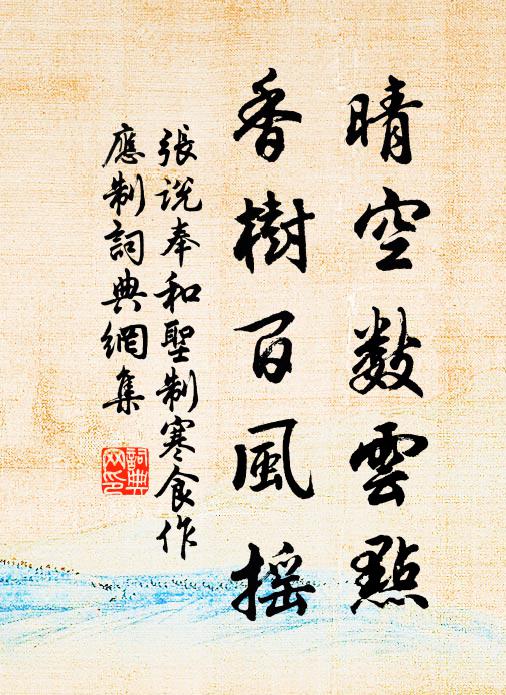 晴空數雲點
香樹百風搖
張說奉和聖制寒食作
應制詞典網集
詞典
网印